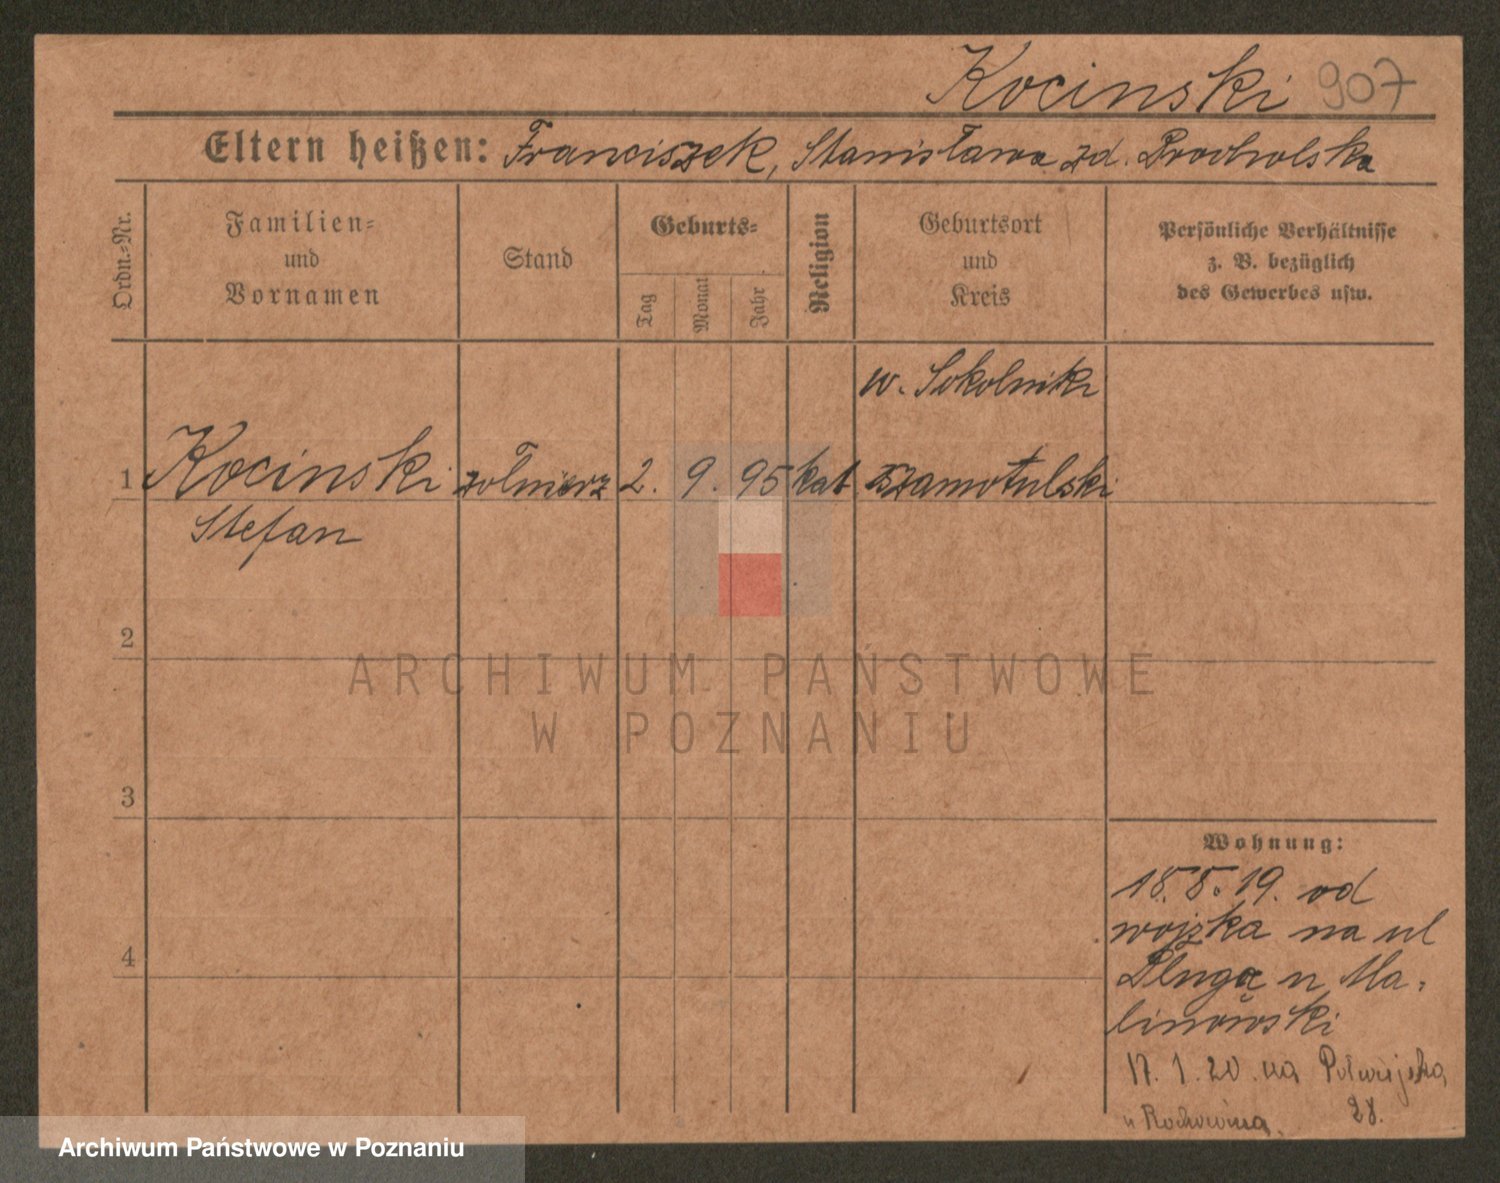 Kocinski 907
Eltern heißen: Franciszek, Stanisława zd.
Ordn.-Nr.
Familien-
und
Vornamen
Stand
Geburts-
Tag
Monat
Jahr
Religion
Geburtsort
und
Kreis
Persönliche Verhältnisse
z. B. bezüglich
des Gewerbes usw.
w. Sokolniki
1 Kocinski żołnierz 2. 9. 95 kat szamotulski
Stefan
2
3
4
Wohnung:
18.8.19. od
wojska na ul
Długą u Ma-
linowski
17. 1. 20. na
28.
ARCHIWUM PAŃSTWOWE
W POZNANIU
Archiwum Państwowe w Poznaniu